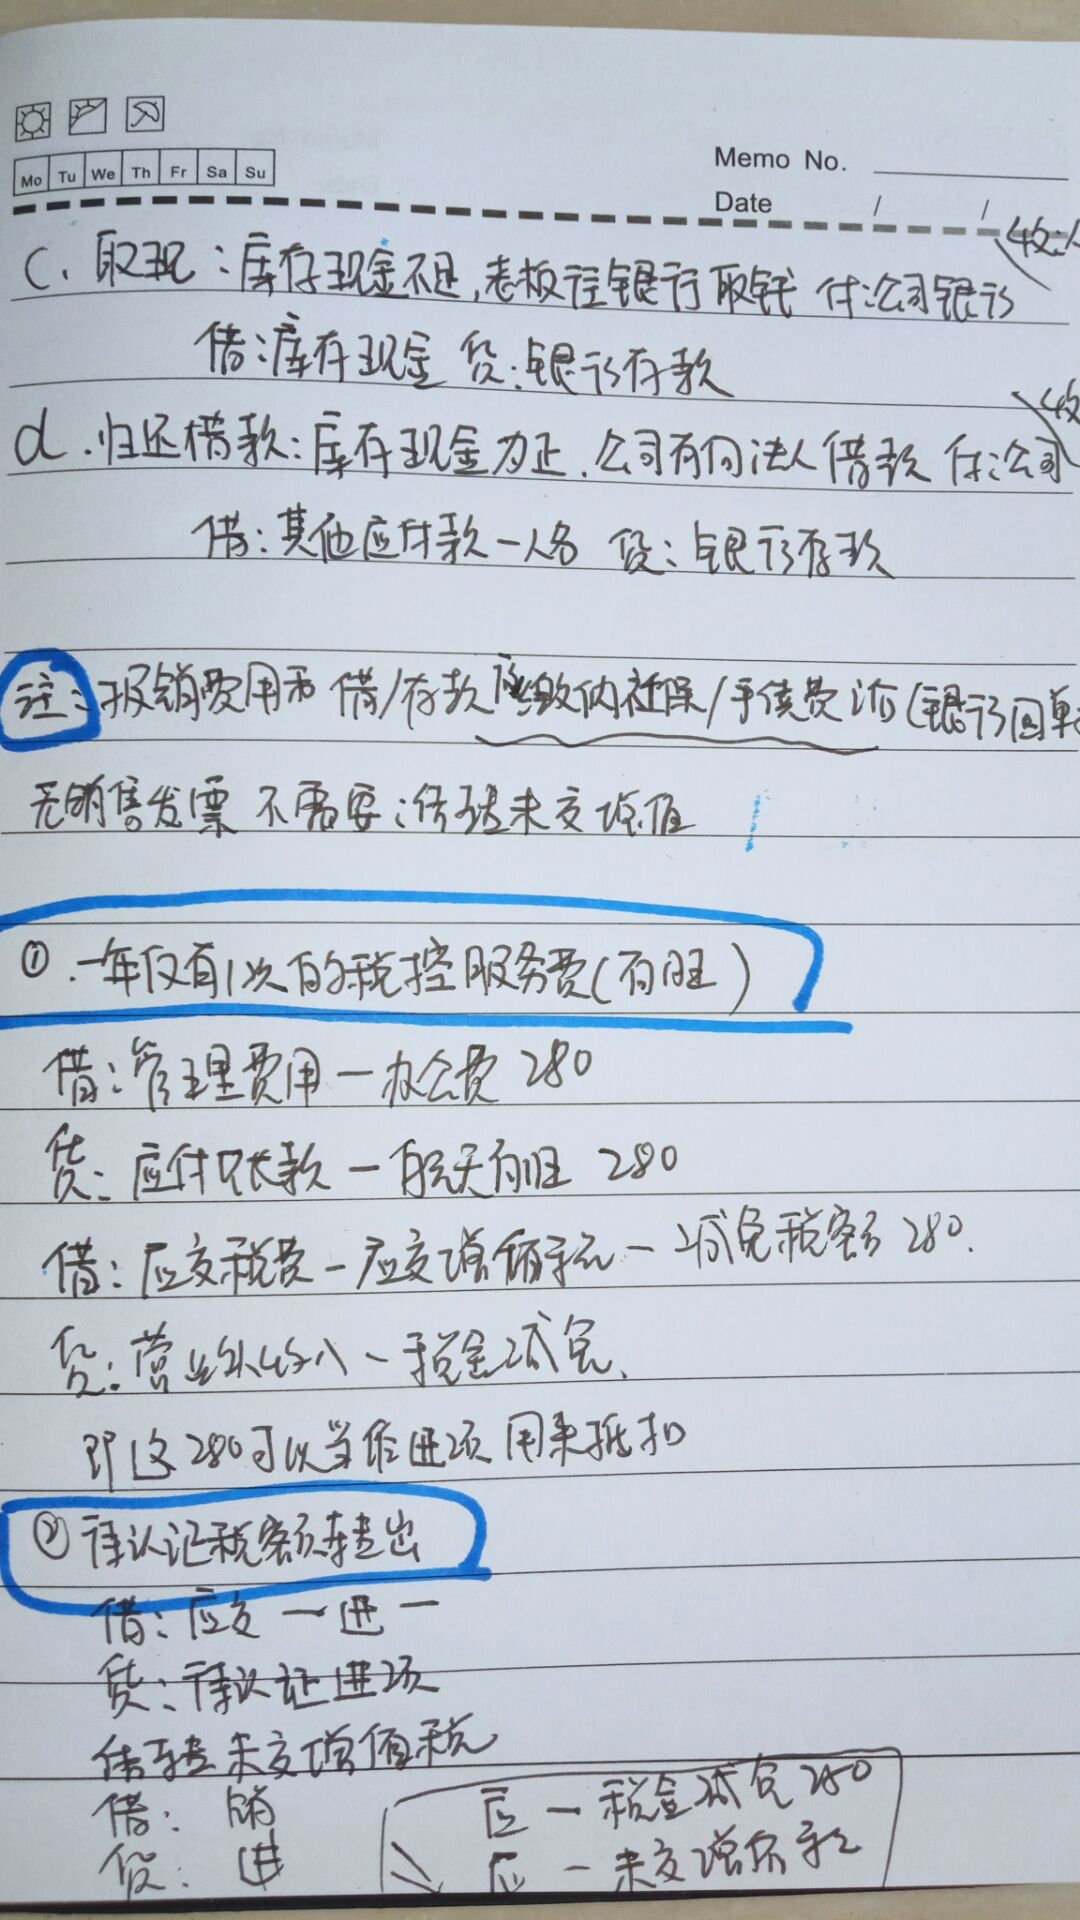 Mo Tu We Th Fr Sa Su
Memo No.
Date / /
收:人
C. 取现:库存现金不足,老板往银行取钱 付:公司银行
借:库存现金 贷:银行存款
收
d.归还借款:库存现金为正,公司有向法人借款 付:公司
借:其他应付款一人名 贷:银行存款
注:报销费用和 借/存款 缴纳社保/手续费 (银行回单
无销售发票 不需要:结转未交增值
① 一年仅有1次的税控服务费(百旺)
借:管理费用一办公费 280
贷:应付账款一航天百旺 280
借:应交税费一应交增值税一减免税额 280.
贷:营业外收入一税金减免.
即这280可以当作进项 用来抵扣
② 待认证税额转出
借:应交一进一
贷:待认证进项
结转未交增值税
借: 销
贷: 进
应一税金减免280
应一未交增值税